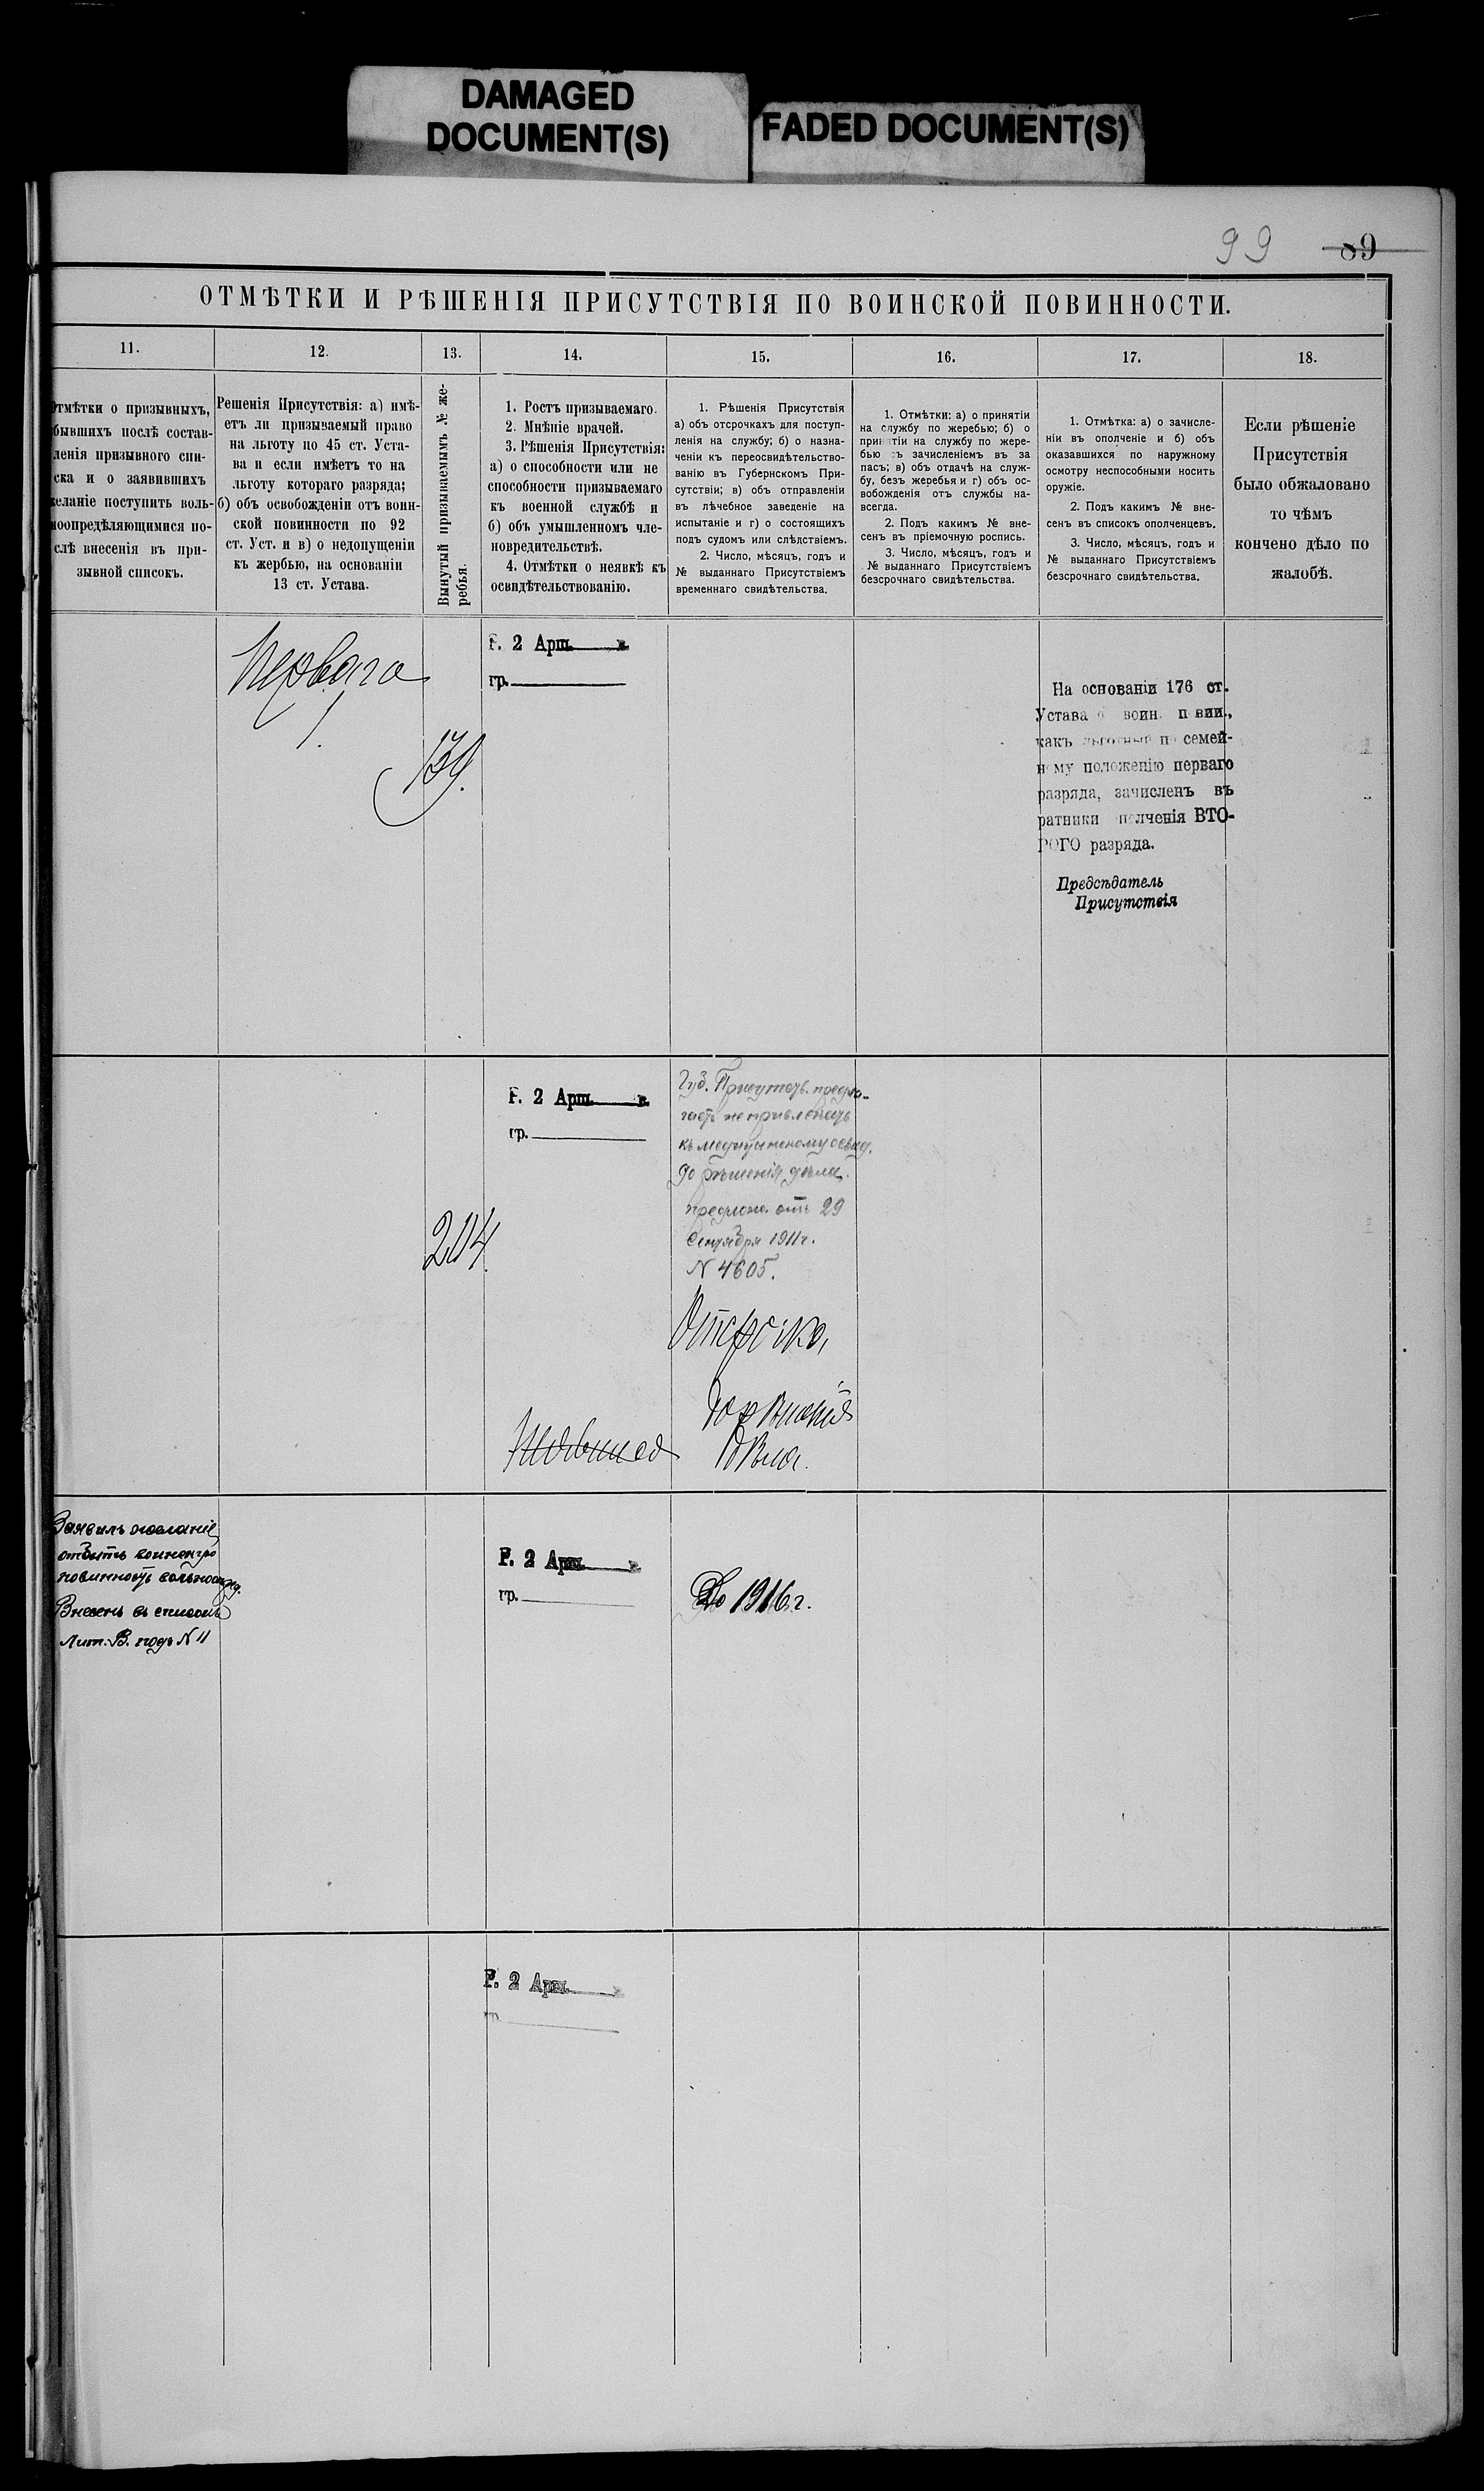 DAMAGED
DOCUMENT(S)
FADED DOCUMENT(S)
99 89
ОТМѢТКИ И РѢШЕНІЯ ПРИСУТСТВІЯ ПО ВОИНСКОЙ ПОВИННОСТИ.
11.
12.
13.
14.
15.
16.
17.
18.
Отмѣтки о призывныхъ,
бывшихъ послѣ состав-
ленія призывного спи-
ска и о заявившихъ
желаніе поступить воль-
ноопредѣляющимися по-
слѣ внесенія въ при-
зывной списокъ.
Решенія Присутствія: а) имѣ-
етъ ли призываемый право
на льготу по 45 ст. Уста-
ва и если имѣетъ то на
льготу котораго разряда;
б) объ освобожденіи отъ воин-
ской повинности по 92
ст. Уст. и в) о недопущеніи
къ жербью, на основаніи
13 ст. Устава.
Вынутый призываемымъ № же-
ребья.
1. Ростъ призываемаго.
2. Мнѣніе врачей.
3. Рѣшенія Присутствія:
а) о способности или не
способности призываемаго
къ военной службѣ и
б) объ умышленномъ чле-
новредительствѣ.
4. Отмѣтки о неявкѣ къ
освидѣтельствованію.
1. Рѣшенія Присутствія
а) объ отсрочкахъ для поступ-
ленія на службу; б) о назна-
ченіи къ переосвидѣтельство-
ванію въ Губернскомъ При-
сутствіи; в) объ отправленіи
въ лѣчебное заведеніе на
испытаніе и г) о состоящихъ
подъ судомъ или слѣдствіемъ.
2. Число, мѣсяцъ, годъ и
№ выданнаго Присутствіемъ
временнаго свидѣтельства.
1. Отмѣтки: а) о принятіи
на службу по жеребью; б) о
принятіи на службу по жере-
бью съ зачисленіемъ въ за
пасъ; в) объ отдачѣ на служ-
бу, безъ жеребья и г) объ ос-
вобожденія отъ службы на-
всегда.
2. Подъ какимъ № вне-
сенъ въ пріемочную роспись.
3. Число, мѣсяцъ, годъ и
№ выданнаго Присутствіемъ
безсрочнаго свидѣтельства.
1. Отмѣтка: а) о зачисле-
ніи въ ополченіе и б) объ
оказавшихся по наружному
осмотру неспособными носить
оружіе.
2. Подъ какимъ № вне-
сенъ въ списокъ ополченцевъ.
3. Число, мѣсяцъ, годъ и
№ выданнаго Присутствіемъ
безсрочнаго свидѣтельства.
Если рѣшеніе
Присутствія
было обжаловано
то чѣмъ
кончено дѣло по
жалобѣ.
Перваго
1.
139.
Р. 2 Арш. в.
гр.
На основаніи 176 ст.
Устава о воин. повин.,
какъ льготный по семей-
ному положенію перваго
разряда, зачисленъ въ
ратники ополченія ВТО-
РОГО разряда.
Предсѣдатель
Присутствія
204.
Р. 2 Арш. в.
гр.
Неявился
Губ. Присутств. предла-
гаетъ не привлекать
къ медицинскому освид.
до рѣшенія дѣла.
предлож. отъ 29
Сентября 1911 г.
N 4605.
Отсрочка,
до рѣшенія
дѣла.
Заявилъ желаніе
отбыть воинскую
повинность вольноопред.
Внесенъ въ списокъ
Лит. В. подъ N 11
Р. 2 Арш. в.
гр.
До 1916 г.
Р. 2 Арш. в.
гр.